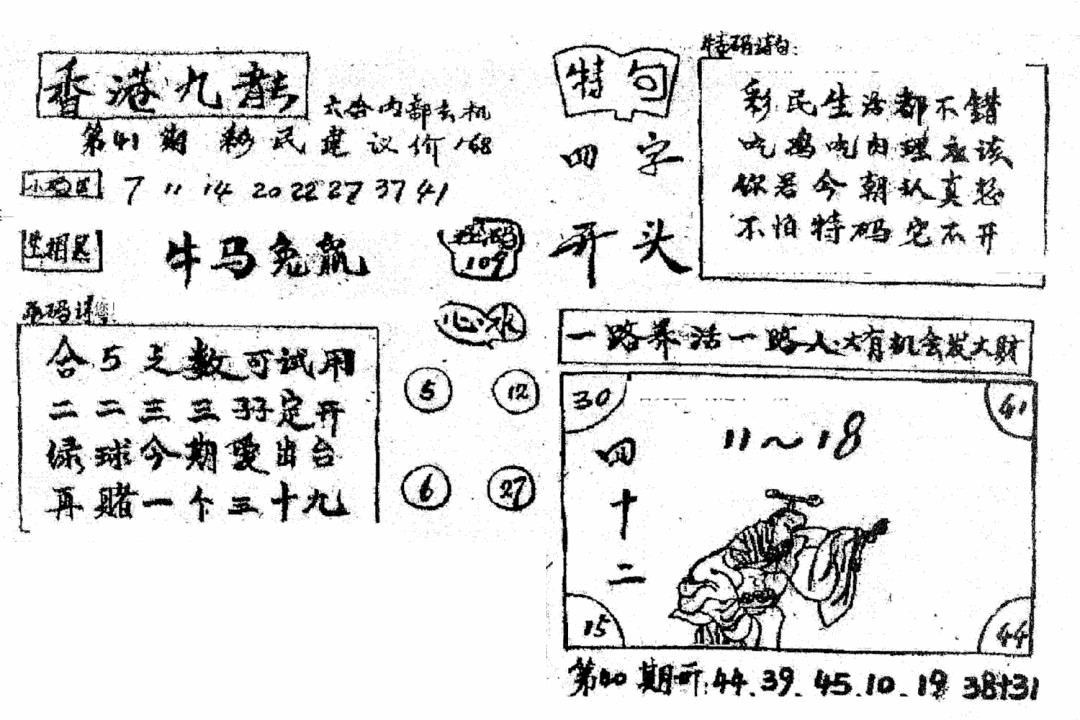 香港九龙
六合内部玄机
第41期 彩民建议价1.68
7 11 14 20 22 27 37 41
生相
牛马兔鼠
109
合5之数可试用
二二三三孖定开
绿球今期要出台
再赌一个三十九
心水
5 12
6 27
特句
四字
开头
特码诗句:
彩民生活都不错
吃鸡吃肉理应该
你若今朝认真想
不怕特码它不开
一路养活一路人大有机会发大财
30 41
11~18
四十二
15 44
第40期开:44.39.45.10.19 38+31